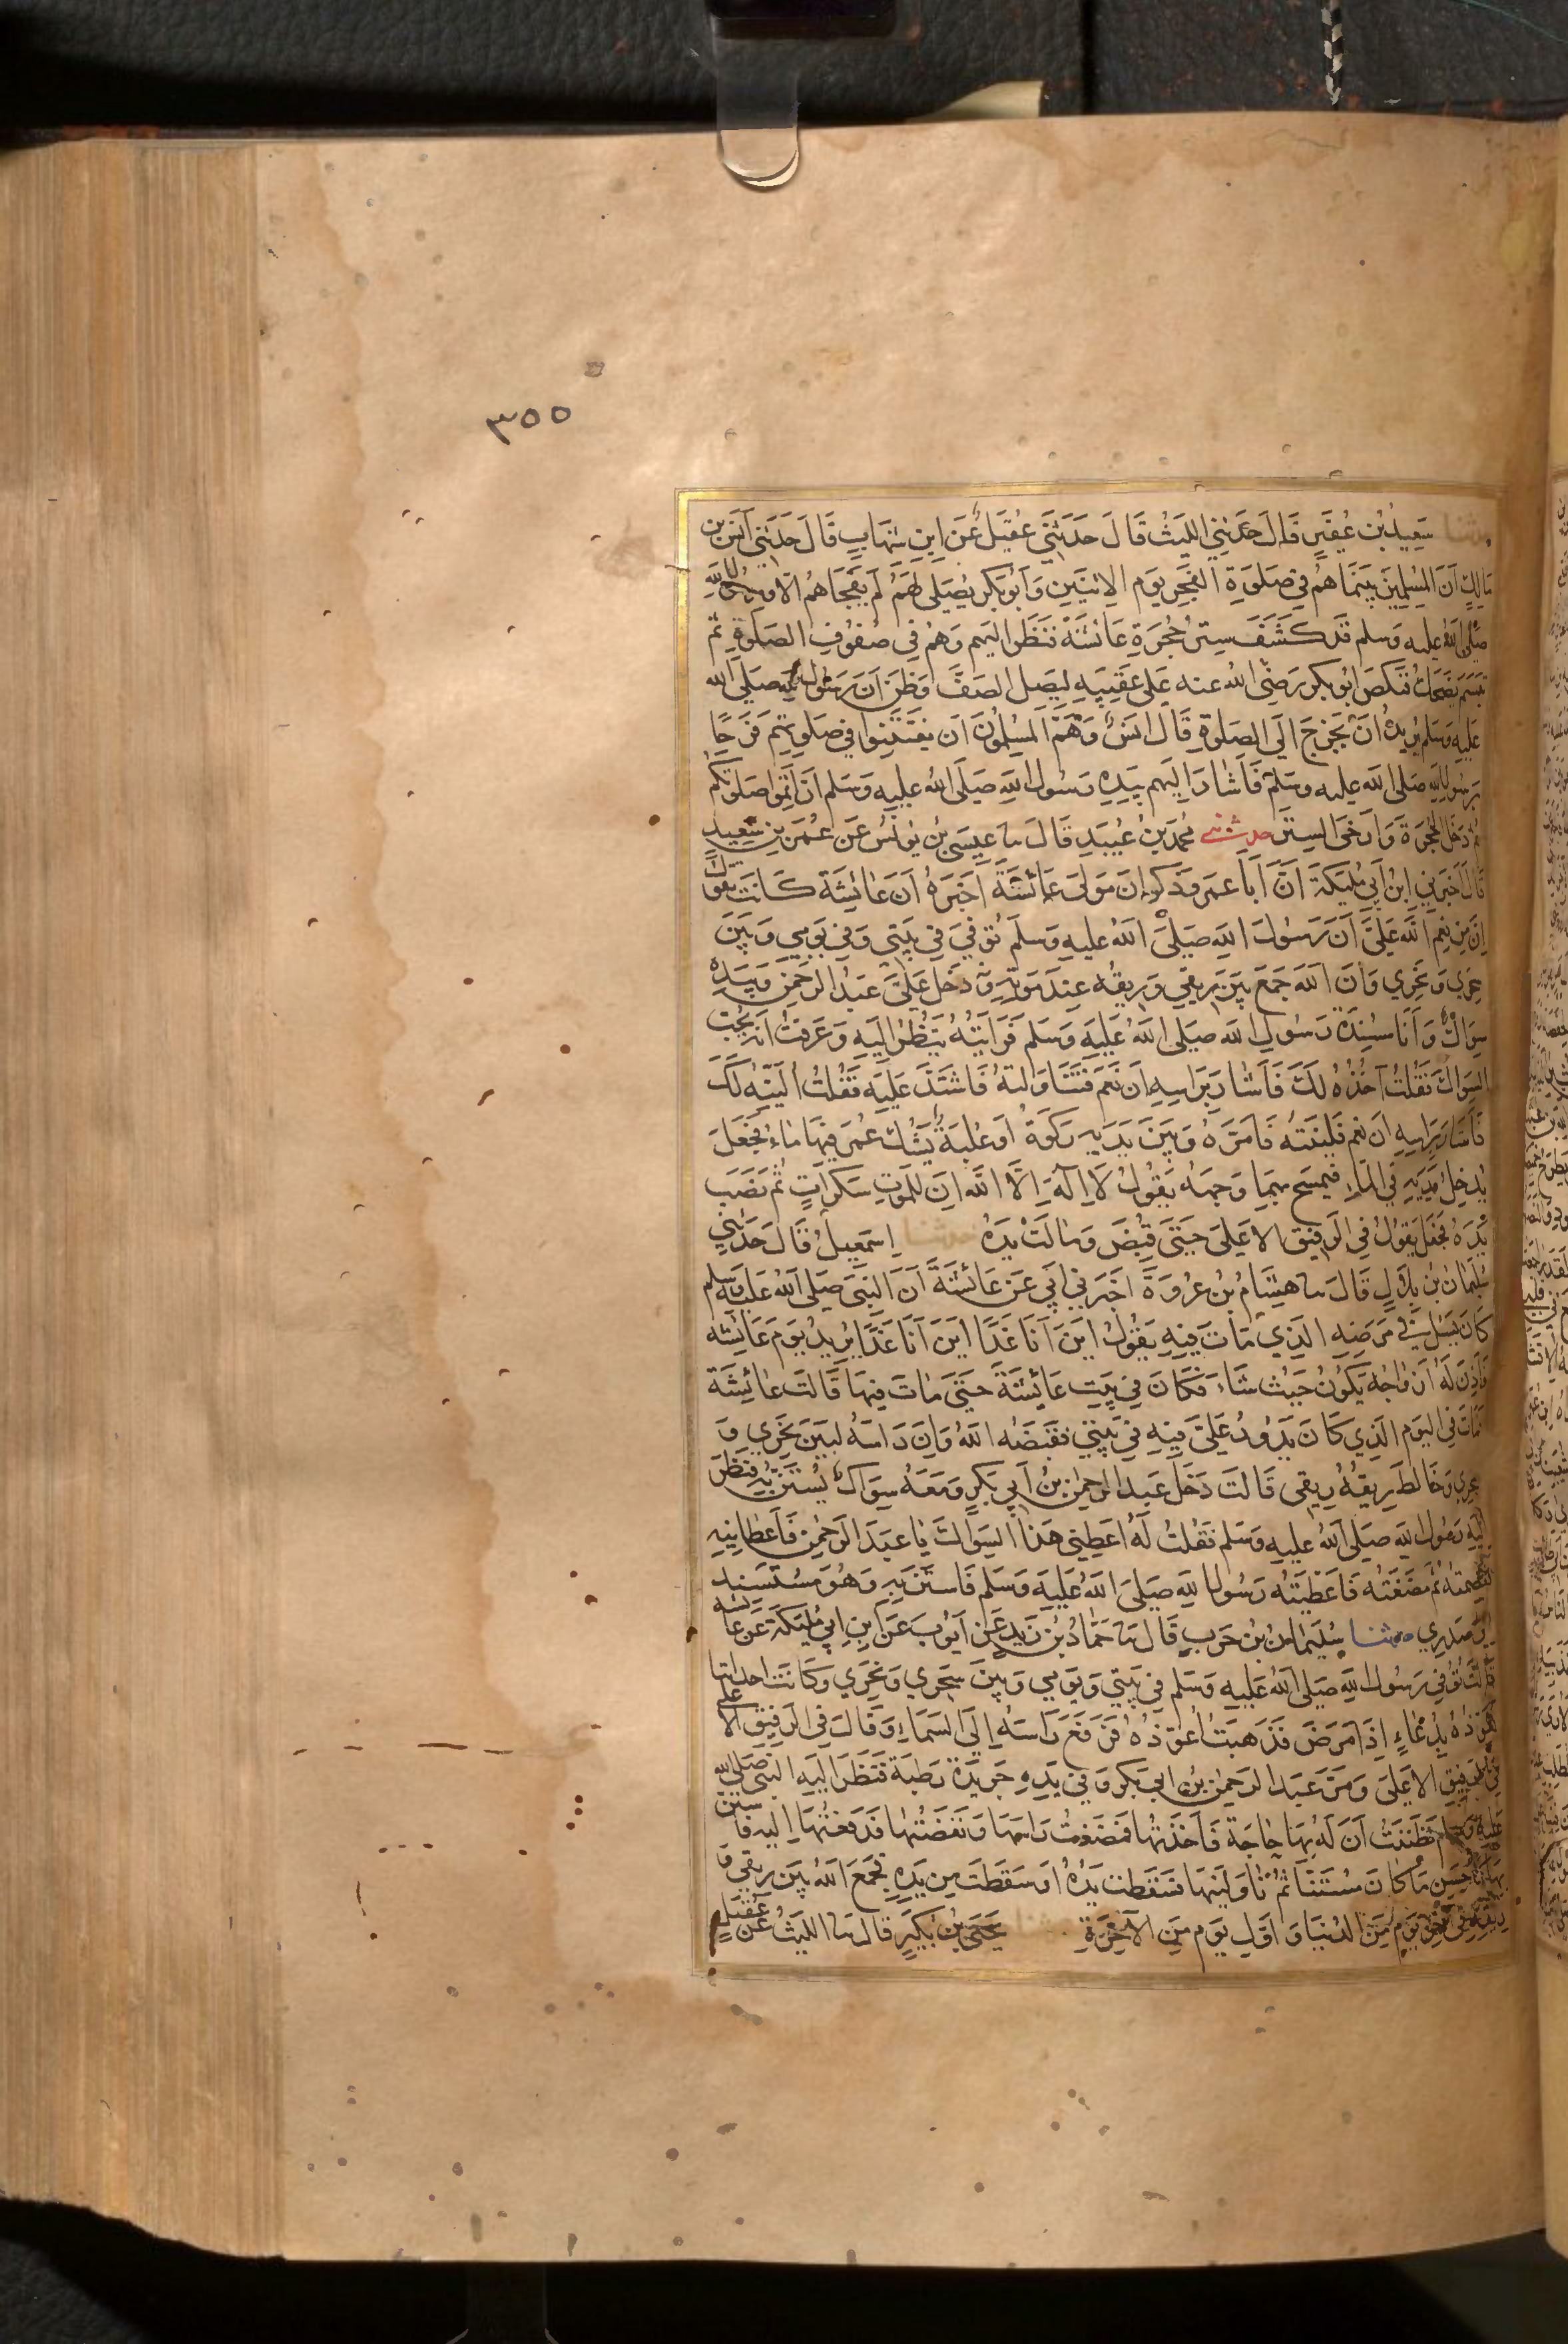 ٣٥٥
حدثنا سَعِيدُ بْن عُفَيرٍ قَالَ حَدَّثنِي اللَيثُ قَالَ حَدَّثَنِي عُقَيلٌ عَن ابنِ شهَابٍ قَالَ حَدثَنِي أنَس بن
مَالِكٍ أنَ المسْلِمِينَ بَينَمَا هُم فِي صَلوةِ الفَجِرِ يَوم الاِثنَينِ وَأَبُو بَكرٍ يُصَلِى لهُمُ لَم يَفجَأهُم الّا وَرسُولُ الله
صَلى اللهُ عليه وَسلم قَد كَشَفَ سِترَ حُجُرَةِ عَائشَةَ فَنَظَرَ اليهم وَهُم فِي صُفُوفِ الصَلوةِ ثم
تَبَسَمَ يَضحَكُ فَنَكَصَ ابُو بكرٍ رَضِى اللهُ عنه عَلى عَقِبَيهِ لِيَصِلَ الصَفَّ وَظَنَ اَن رَسُول الله صَلى الله
عَليهِ وَسَلم يُرِيدُ اَن يَخرُجَ الَى الصَلوةِ قَالَ انَسٌ وَهَمَّ المسْلِمُونَ ان يَفتَتِنوا فِي صَلوتِهم فَرَحًا
بِرَسُولِ اللهِ صَلى الله عليه وسَلم فَاَشَارَ اِلَيهِم بِيَدِهِ رَسُولُ اللهِ صَلَى اللهُ عليهِ وَسَلم اَن اَتِمُّوا صَلوتَكُم
ثم دَخَلَ الحُجرَةَ وَارخَى السِترَ حدثنى محمد بنُ عُبَيدٍ قَالَ سا عِيسَى بنُ يُونُسَ عَن عُمَرَ بنِ سَعِيدٍ
قَالَ اَخبَرَنِي ابنُ اَبِي مُلَيكَةَ اَنَّ اَبَا عمرو ذَكوانَ مَولَى عَائشَةَ اَخبَرَهُ اَن عَائِشَةَ كَانَت تقولُ
اِنَّ مِن نِعَمِ اللهِ عَلَيَّ اَن رَسُولَ اللهِ صَلَى اللهُ عليهِ وَسلم تُوُفِيَ فِي بَيتِي وَفِي يَومِي وَبَينَ
سَحرِي وَنَحرِي وَاَن اللهَ جَمَعَ بَينَ رِيقِي وَرِيقِهِ عِندَ مَوتِهِ وَدَخَلَ عَلَيَّ عَبدُ الرَحمنِ وَبِيَدِهِ
سِوَاكٌ وَاَنَا مُسنِدَةٌ رَسُولَ اللهِ صَلى اللهُ عَليهِ وَسَلم فَرَاَيتُهُ يَنظُرُ اليهِ وَعَرَفتُ اَنهُ يُحِبُّ
السِوَاكَ فَقُلتُ آخُذُهُ لَكَ فَاَشَارَ بِرَاسِهِ اَن نَعَم فَتَنَاوَلتهُ فَاشتَدَّ عَلَيهِ فَقُلتُ اُلَيّنهُ لَكَ
فَاَشَارَ بِرَاسِهِ ان نعم فَلَيَنتهُ فَاَمَرَّهُ وَبَينَ يَدَيهِ رَكوَةٌ اَو عُلبَةٌ يَشُكُّ عُمَرُ فِيهَا مَاءٌ فَجَعَلَ
يُدخِلُ يَدَيهِ فِي المَاءِ فيمسَح بِهِمَا وَجهَهُ يَقُولُ لَا اِلَهَ اِلَّا اللهُ اِنَّ لِلمَوتِ سَكَراتٍ ثُمَ نَصَبَ
يَدَهُ فَجَعَلَ يَقُولُ فِي الرَفِيقِ الاعلَى حَتَى قُبِضَ وَمَالَت يَدُهُ حدثنا اِسمَعِيلُ قَالَ حَدَثنِي
سُلَيمَانُ بنُ بِلَالٍ قَالَ سا هِشَامُ بنُ عُروَةَ اَخبَرَنِي اَبِي عَن عَائشَةَ اَنَ النَبِيَ صَلَى اللهُ عَليه وسلم
كَانَ يَسأل فِي مَرَضِهِ الَذِي مَاتَ فِيهِ يَقُولُ اَينَ اَنَا غَدًا اَينَ اَنَا غَدًا يُرِيدُ يَومَ عَائِشَه
فَاَذِنَ لَهُ اَزوَاجُه يَكُونُ حَيثُ شَاءَ فَكَانَ فِي بَيتِ عَائِشَةَ حَتَى مَاتَ فِيهَا قَالَت عَائِشَةُ
فَمَاتَ فِي اليَومِ الَذِي كَانَ يَدُورُ عَلَيَّ فِيهِ فِي بَيتِي فَقَبَضَهُ اللهُ وَاِنَّ رَاسَهُ لَبَينَ نَحرِي وَ
سحرِي وَخَالَطَ رِيقُهُ رِيقِي قَالَت دَخَلَ عَبدُ الرحمنِ بنُ اَبِي بَكرٍ وَمَعَهُ سِوَاكٌ يَستَنُّ بِهِ فَنَظَرَ
اِلَيهِ رَسُولُ اللهِ صَلَى اللهُ عليهِ وَسَلم فَقُلتُ لَهُ اَعطِنِي هَذَا السِوَاكَ يَا عَبدَ الرَحمنِ فَاَعطَانِيهِ
فقضمته ثُم مَضَغتُه فَاَعطَيتُه رَسُولَ اللهِ صَلَى اللهُ عَليهِ وَسَلم فَاستَنَّ بِهِ وَهُوَ مُستَسنِد
اِلى صَدرِي حدثنا سُلَيمَانُ بنُ حَربٍ قَالَ سا حَمَّادُ بنُ زَيدٍ عَن اَيُّوبَ عَنِ ابنِ اَبِي مُلَيكَةَ عَن عَائشه
قَالَت تُوُفِيَ رَسُولُ اللهِ صَلَى اللهُ عَليهِ وَسَلم فِي بَيتِي وَيَومِي وَبَينَ سَحرِي وَنَحرِي وَكَانَت احدانا
تعَوذُهُ بِدُعَاءٍ اِذَا مَرِضَ فَذَهَبتُ اُعَوّذُهُ فَرَفَعَ رَاسَهُ اِلَى السَمَاءِ وَقَالَ فِي الرَفِيقِ الاعلى
فِي الرفِيقِ الاعلَى وَمَرَّ عَبدُ الرَحمنِ بنُ اَبِي بَكرٍ وَفِي يَدِهِ جَرِيدَةٌ رَطبَةٌ فَنَظَرَ اِلَيهِ النَبِيُ صَلى الله
عَليهِ وَسلم فَظَنَنتُ اَنَّ لَهُ بِهَا حَاجَةً فَاَخَذتُهَا فَمَضَغتُ رَاسَهَا وَنَفَضتُهَا فَدَفَعتُهَا اِليهِ فاستن
بِهَا كَاَحسَنِ مَا كَانَ مُستَنًّا ثُم نَاوَلَنِيهَا فَسَقَطَت يَدُهُ اَو سَقَطَت مِن يَدِهِ فَجَمَعَ اللهُ بَينَ رِيقِي وَ
رِيقِهِ فِي آخِرِ يَومٍ مِنَ الدُنيَا وَاَوَّلِ يَومٍ مِنَ الآخِرَةِ حدثنا يَحيَى بنُ بُكَيرٍ قَالَ سا اللَيثُ عَن عُقَيلٍ